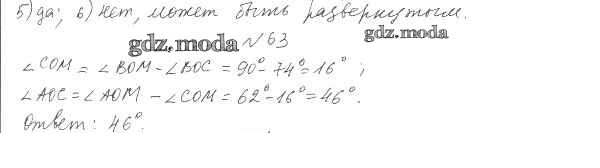 5) да; 6) нет, может быть развернутым.
gdz.moda №63 gdz.moda
∠COM = ∠BOM - ∠BOC = 90° - 74° = 16° ;
∠AOC = ∠AOM - ∠COM = 62° - 16° = 46°.
Ответ: 46°.